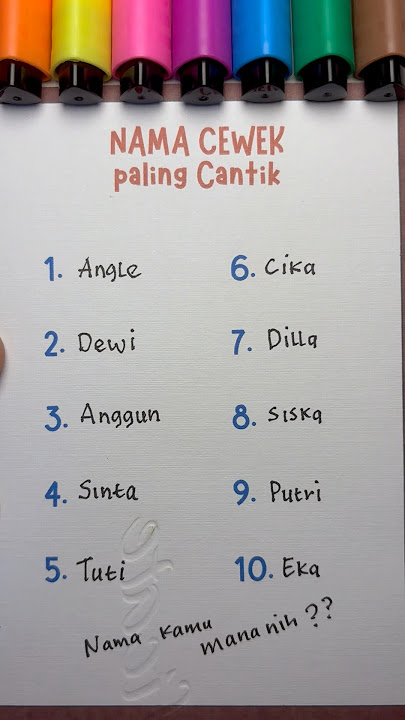 NAMA CEWEK
paling Cantik
1. Angle
2. Dewi
3. Anggun
4. Sinta
5. Tuti
6. Cika
7. Dilla
8. Siska
9. Putri
10. Eka
Nama kamu
mana nih ??